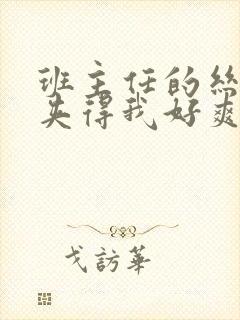 班主任的丝
夹得我好爽
戈訪華